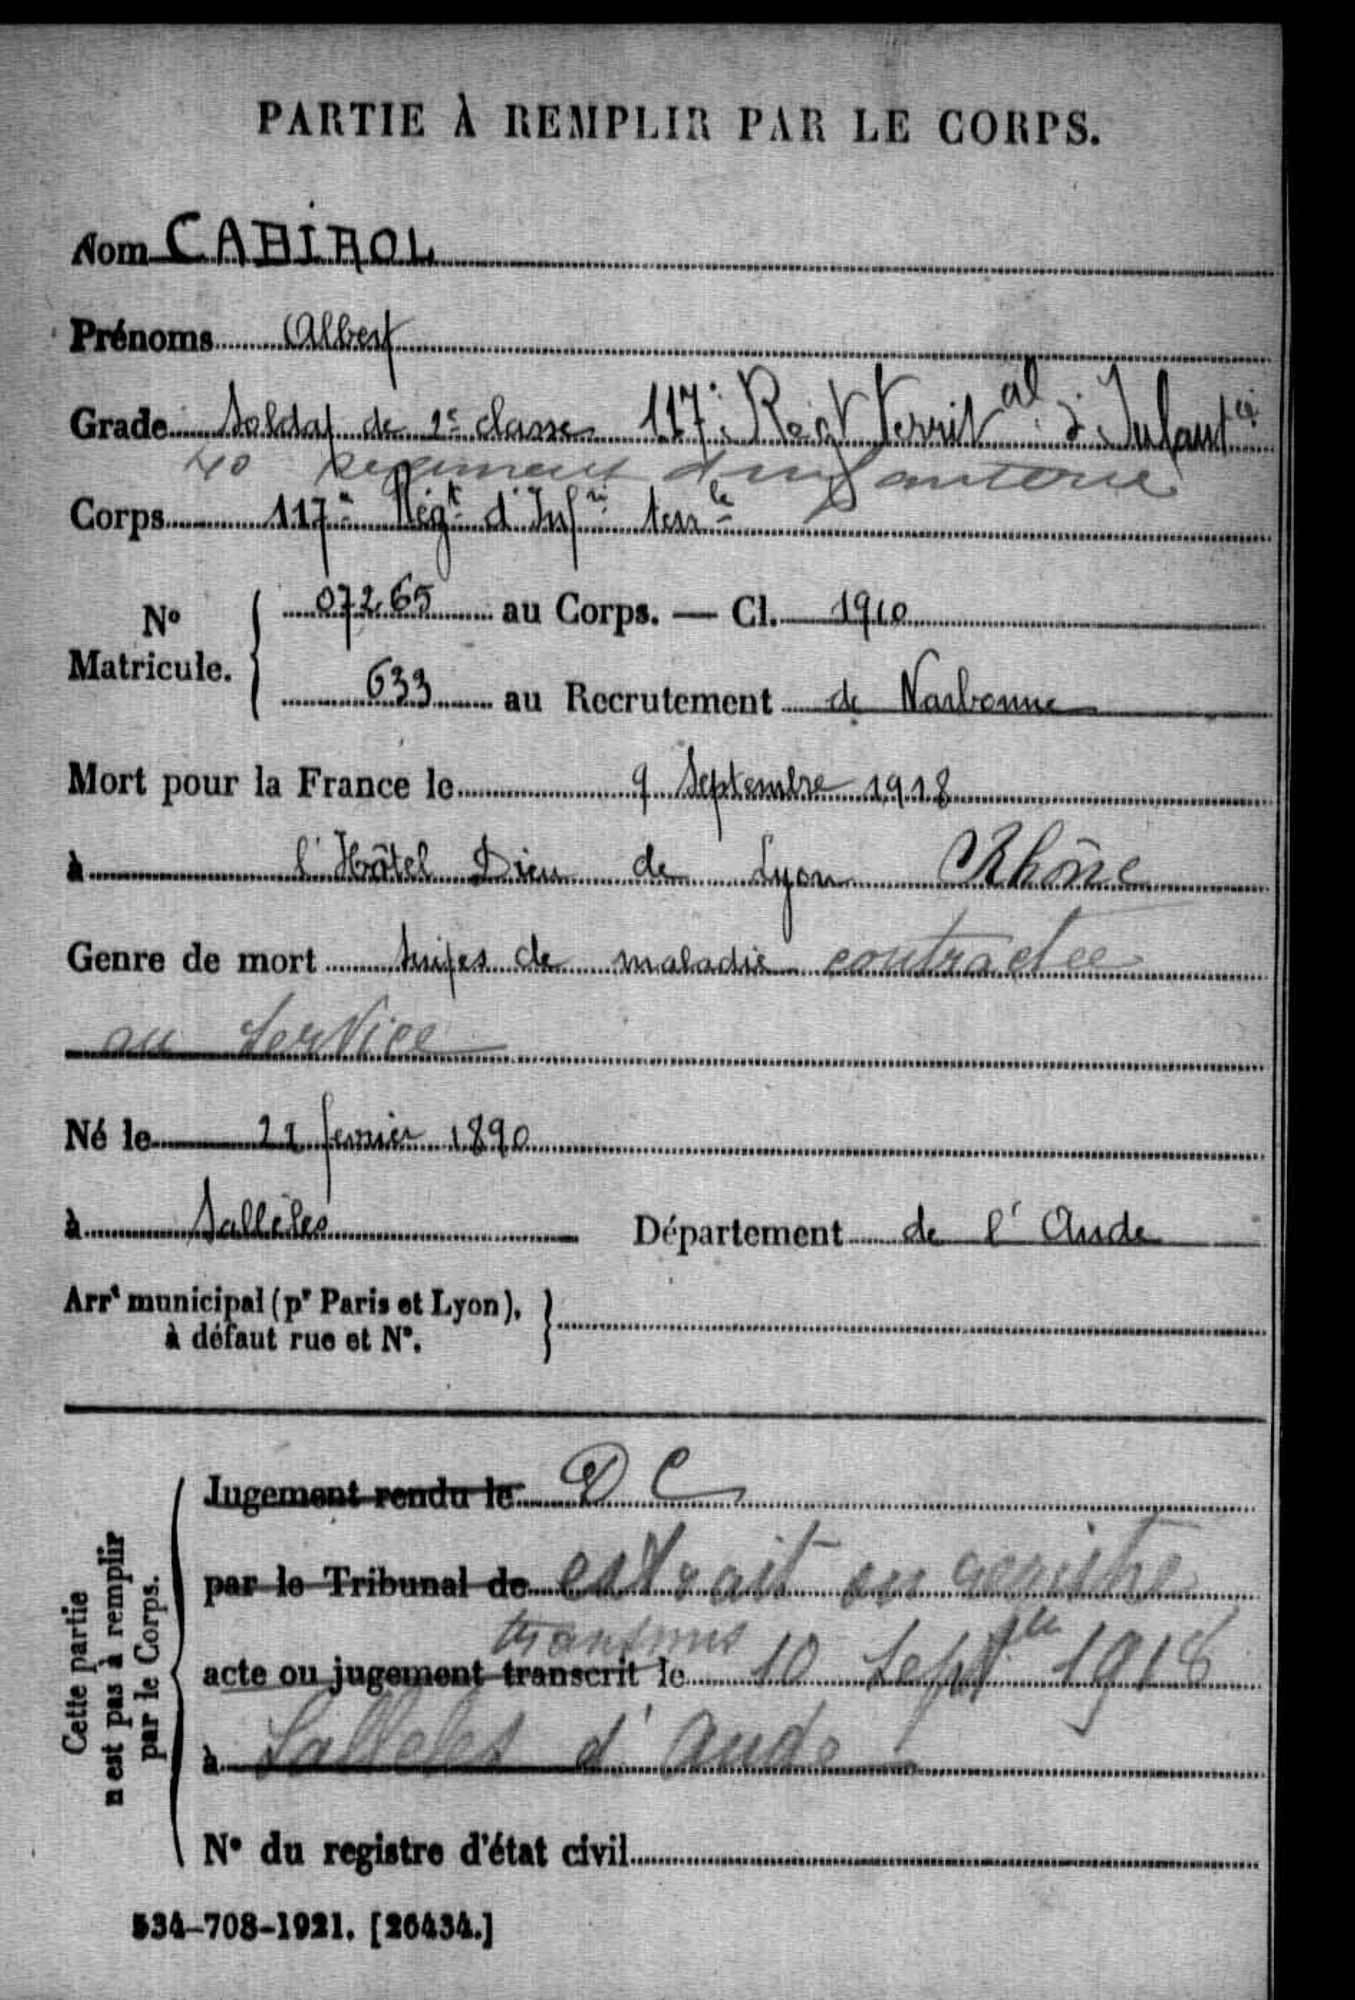 PARTIE À REMPLIR PAR LE CORPS.
Nom CABIROL
Prénoms Albert
Grade Soldat de 2e classe 117e Régt Territal d'Infantie
40 regiment d'infanterie
Corps 117e Régt d'Infie terrle
No Matricule. { 07265 au Corps. — Cl. 1910
633 au Recrutement de Narbonne
Mort pour la France le 9 Septembre 1918
à l'Hôtel Dieu de Lyon Rhône
Genre de mort Suites de maladie contractée
au Service
Né le 21 fevrier 1890
à Sallèles Département de l'Aude
Arrt municipal (pr Paris et Lyon), à défaut rue et No. }
Cette partie n'est pas à remplir par le Corps.
Jugement rendu le D C
par le Tribunal de extrait du registre
transmis
acte ou jugement transcrit le 10 Sept 1918
à Salleles d'Aude
No du registre d'état civil
534-708-1921. [26434.]